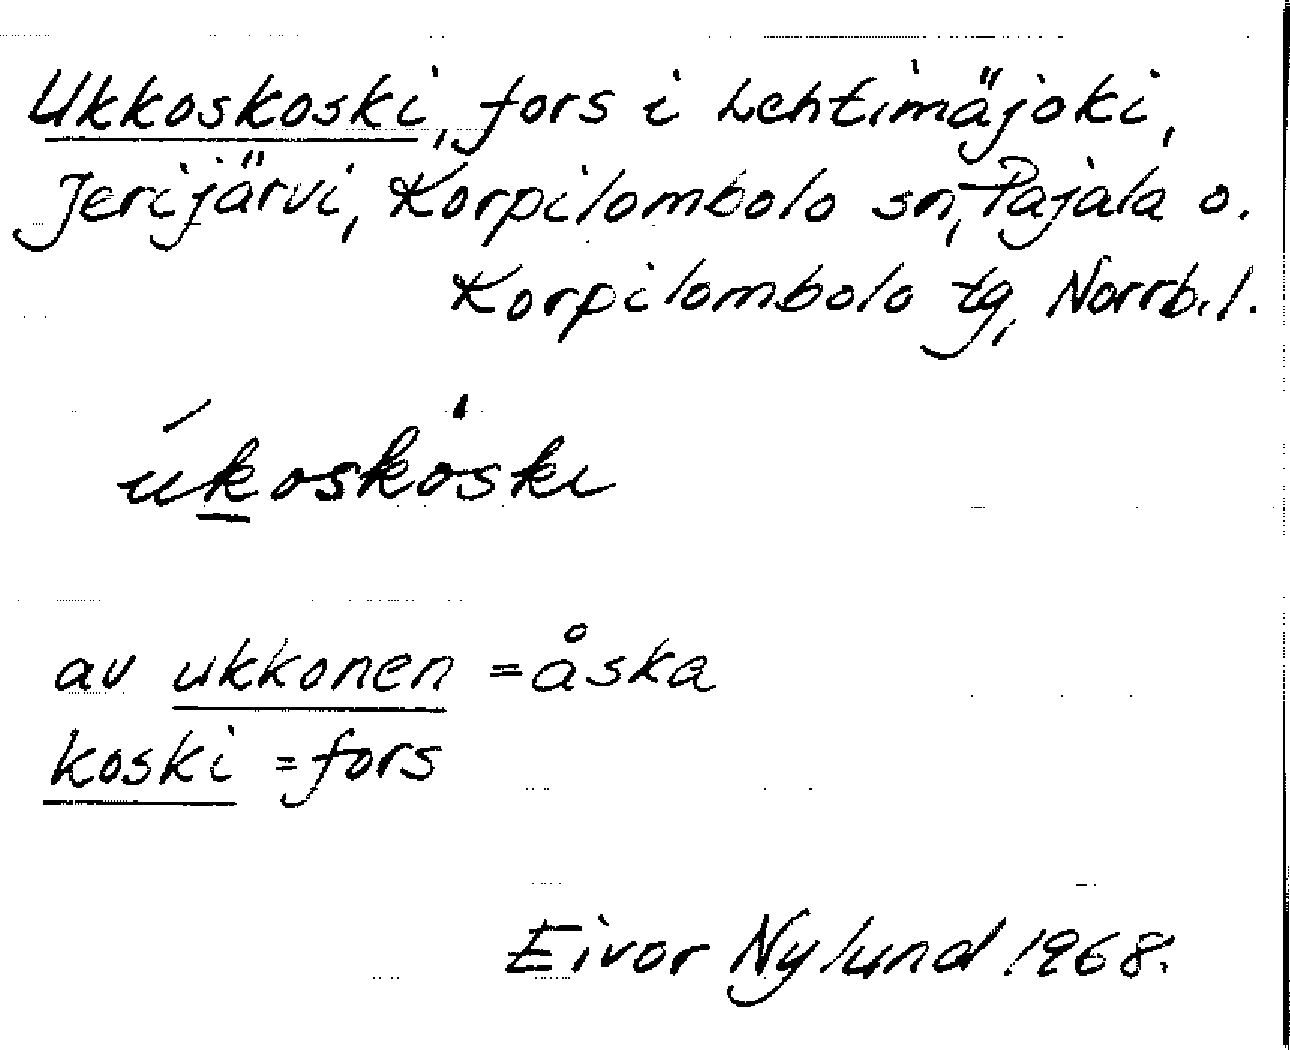 Ukkoskoski, fors i Lehtimäjoki,
Jerijärvi, Korpilombolo sn, Pajala o.
Korpilombolo tg, Norrb. l.
úkoskòski
av ukkonen = åska
koski = fors
Eivor Nylund 1968.